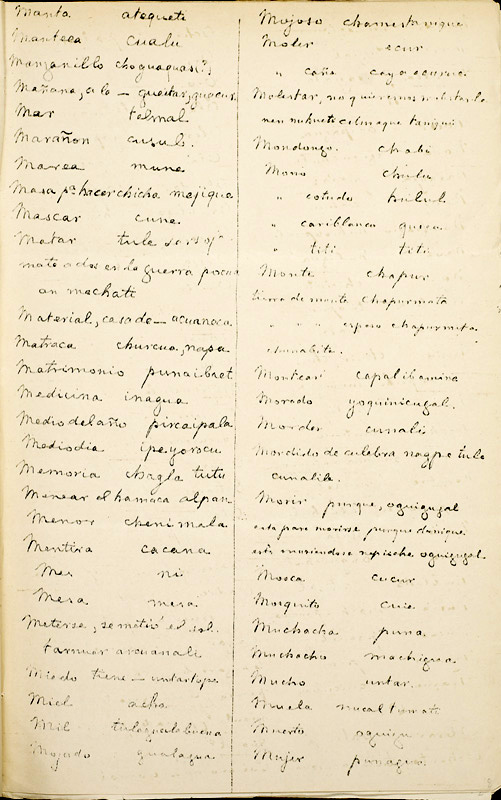 Manta atequete
Manteca cualu
Manzanillo choguaguas(?)
Mañana, a lo — gueitar, guacur
Mar telmal
Marañon cusub.
Marea mune
Masa pa hacer chicha majique
Mascar cune
Matar tule
mate a dos en la guerra
an mechati
Material, casa de — acuanaca
Matraca churcua, napa
Matrimonio punaibaet
Medicina inagua
Medio del año pircaipala
Mediodia ipeyorocu
Memoria chagla tutu
Menear el hamaca alpan
Menor chenimala
Mentira cacana
Mes ni
Mesa mesa
Meterse, se metió el sol.
tarnuar arcuanali
Miedo tiene — untartope
Miel acha
Mil
Mojado gualagua
Mojoso
Moler ecur
" caña
Molestar,
Mondongo. chabi
Mono chulu
" cotudo
" cariblanco
" titi titi
Monte chapur
tierra de monte chapurmata
" " espeso chapurmita
chunabite.
Montear capalibamina
Morado yoquinicugal.
Morder cunali
Mordido de culebra nagpe tule
cunalile.
Morir purque, oguigugal
esta para morirse purque
está muriendose napische oguigugal
Mosca cucur
Mosquito cuie
Muchacha puna
Muchacho machigua
Mucho untar
Muela
Muerto
Mujer punagua